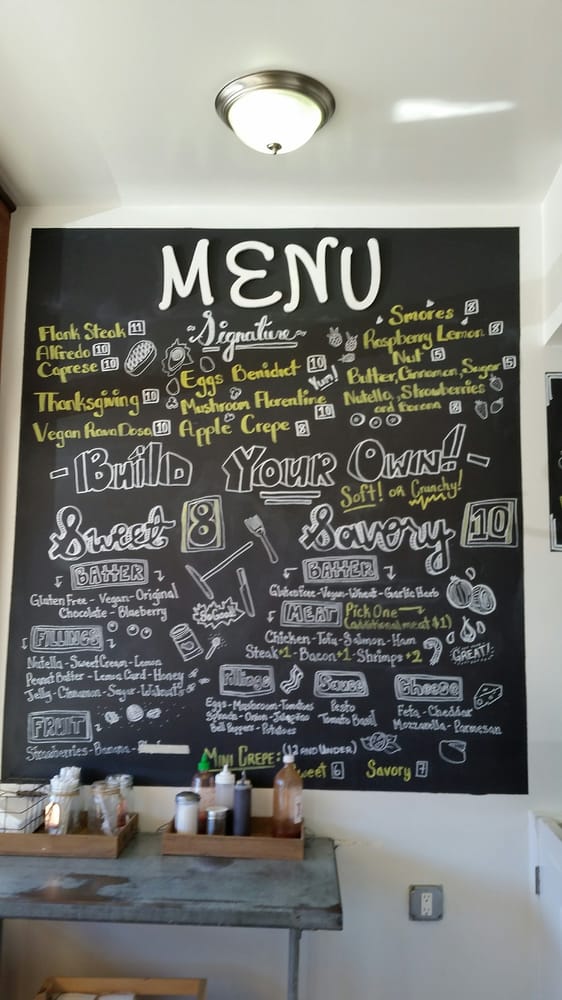 MENU
~Signature~
Flank Steak 11
Alfredo 10
Caprese 10
Thanksgiving 10
Vegan Rava Dosa 10
Eggs Benidict 10
Yum!
Mushroom Florentine 10
Apple Crepe 8
Smores 8
Raspberry Lemon 8
Nut 5
Butter, Cinnamon, Sugar 5
Nutella, Strawberries
and Banana 8
- Build Your Own!! -
Soft! or Crunchy!
Sweet 8
Batter
Gluten Free - Vegan - Original
Chocolate - Blueberry
Fillings
Nutella - Sweet Cream - Lemon
Peanut Butter - Lemon Curd - Honey
Jelly - Cinnamon - Sugar - Walnuts
Fruit
Strawberries - Banana -
Savory 10
Batter
Gluten free - Vegan - Wheat - Garlic Herb
Meat Pick One
(additional meat $1)
Chicken - Tofu - Salmon - Ham
Steak +1 - Bacon +1 - Shrimps +2
GREAT!
Fillings
Eggs - Mushroom - Tomatoes
Spinach - Onion - Jalapino
Bell Peppers - Potatoes
Sauce
Pesto
Tomato Basil
Cheese
Feta - Cheddar
Mozzarella - Parmesan
Mini Crepe: (12 AND UNDER)
Sweet 6 Savory 7